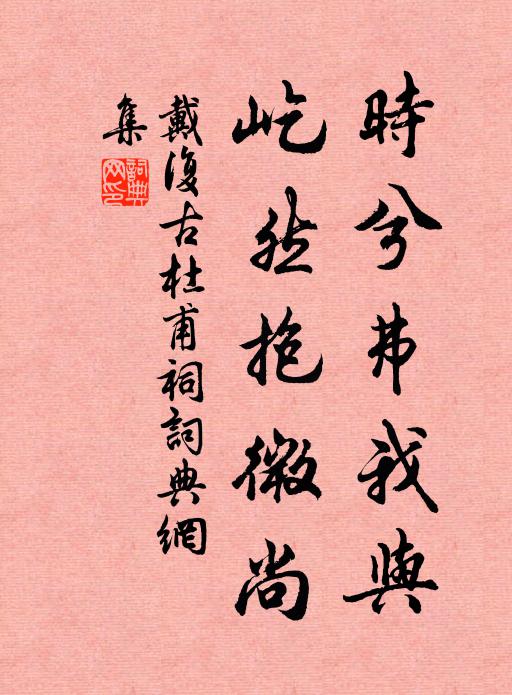 時兮弗我與
屹然抱微尚
戴復古杜甫祠詞典網
集
詞典网印